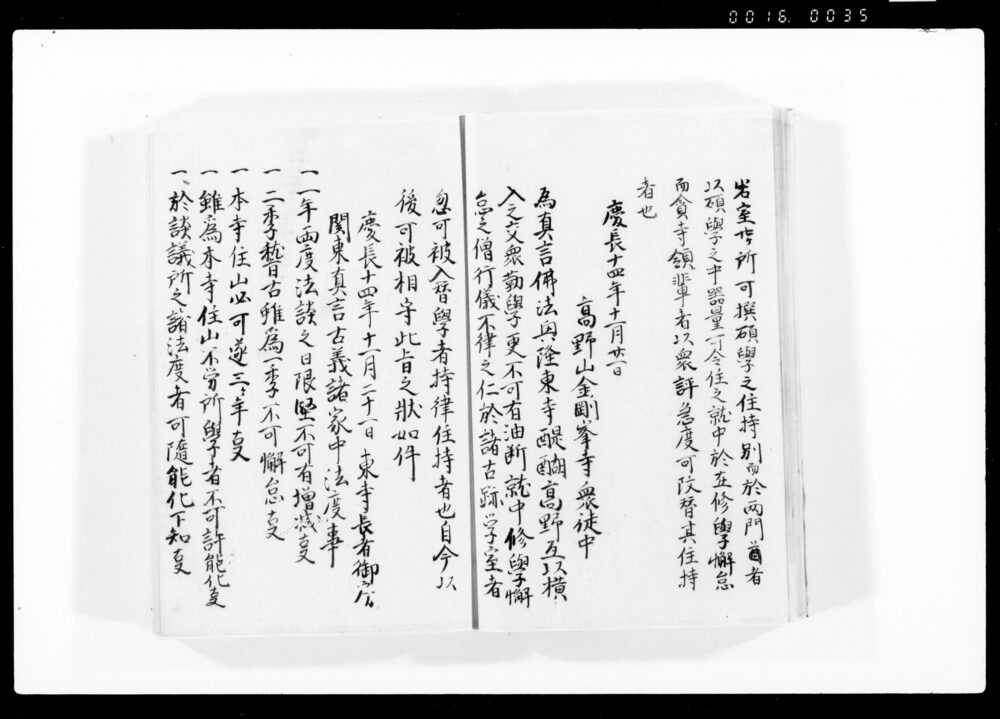 0016. 0035
岩室等所可撰碩學之住持別而於両門首者
以碩學之中器量可令住之就中於在修學懈怠
而貪寺領輩者以衆評急度可改替其住持
者也
慶長十四年十一月廿一日
高野山金剛峯寺衆徒中
為真言佛法興隆東寺醍醐高野互以横
入之交衆勤學更不可有油断就中修學懈
怠之僧行儀不律之仁於諸古跡学室者
忽可被入替學者持律住持者也自今以
後可被相守此旨之状如件
慶長十四年十一月二十一日 東寺長者御房
関東真言古義諸家中法度事
一一年両度法談之日限堅不可有増減事
一二季稽古雖為一季不可懈怠事
一本寺住山必可遂三ヶ年事
一雖為本寺住山不労所學者不可許能化事
一於談議所之諸法度者可随能化下知事